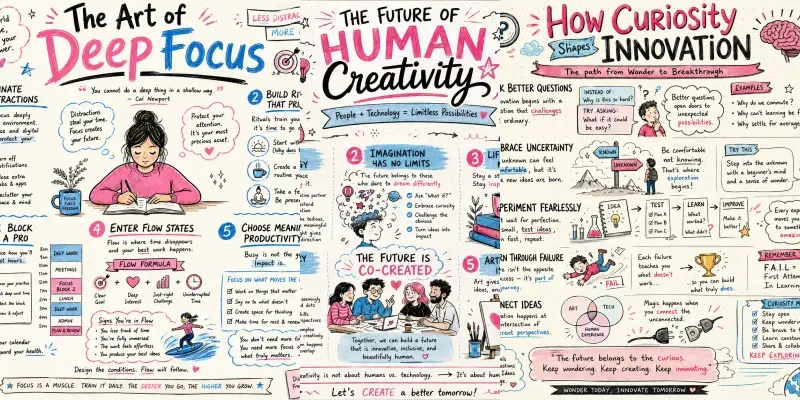 The Art of
Deep Focus
LESS DISTRAC
MORE
" You cannot do a deep thing in a shallow way. "
— Cal Newport
INATE
TRACTIONS
Distractions
steal your time.
Focus creates
your future.
Protect your
attention.
It's your most
precious asset.
FOCUS
FUELS
FREEDOM
2 BUILD RI
THAT PR
Rituals train you
it's time to go
Start wi
Create a
routine
Take a fe
BLOCK
A PRO
DEEP WORK
MEETINGS
FOCUS
BLOCK 2
LUNCH
DEEP WORK
ADMIN
PLAN & REVIEW
your calendar
guard your health.
4 ENTER FLOW STATES
Flow is where time disappears
and your best work happens.
FLOW FORMULA
Clear
Goal
Deep
Interest
Just-right
Challenge
Uninterrupted
Time
Signs You're in Flow
You lose track of time
You're fully immersed
The work feels effortless
You produce your best ideas
Design the conditions. Flow will follow.
5 CHOOSE MEANI
PRODUCTIVITY
Busy is not the
Impact is.
FOCUS ON WHAT MOVES
Work on things that matter
Say no to what doesn't
Create space for thinking
Make time for rest & renew
You don't need more
You need more focus o
what truly matters.
FOCUS IS A MUSCLE. TRAIN IT DAILY. THE DEEPER YOU GO, THE HIGHER YOU GROW.
THE FUTURE OF
HUMAN
Creativity
People + Technology = Limitless Possibilities
2 IMAGINATION
HAS NO LIMITS
The future belongs to those
who dare to dream differently.
Ask "What if?"
Embrace curiosity
Challenge the
obvious
Turn ideas into
impact
THE FUTURE IS
CO-CREATED
Together, we can build a future
that is innovative, inclusive, and
beautifully human.
3 LIF
Stay a
Stay insp
5 ART
gives
ideas, and
eativity is not about humans vs. technology. → It's about hum
Let's CREATE a better tomorrow!
How Curiosity
Shapes INNOVATION
The path from Wonder to Breakthrough
K BETTER QUESTIONS
ovation begins with a
stion that challenges
ordinary.
INSTEAD OF:
Why is this so hard?
TRY ASKING:
What if it could
be easy?
Better questions
open doors to
unexpected
possibilities.
EXAMPLES
Why do we commute?
Why can't learning be
Why settle for average
BRACE UNCERTAINTY
unknown can feel
mfortable, but it's
new ideas are born.
KNOWN
UNKNOWN
Be comfortable
not knowing.
That's where
exploration
begins!
TRY THIS
Step into the unknown
with a beginner's mind
and a sense of wonder
PERIMENT FEARLESSLY
wait for perfection.
small, test ideas,
n fast, repeat.
IDEA
TEST
Plan A
Plan B
Plan C
LEARN
What
worked?
What didn't?
IMPROVE
Make it
better!
Every exp
moves you
to something
amazing
N THROUGH FAILURE
isn't the opposite
ccess — it's part of
journey.
FAIL
Each failure
teaches you
what doesn't
work...
...so you can build
what truly does.
REMEMBER
F.A.I.L. =
First Attem
In Learning
NECT IDEAS
vation happens at
intersection of
erent perspectives.
ART
TECH
HUMAN
EXPERIENCE
Magic happens when
you connect the
unconnected.
CURIOSITY M
Stay open
Keep learn
Be brave to
Learn constan
Share & collab
KEEP EXPLORING
"The future belongs to the curious.
Keep wondering. Keep creating. Keep innovating."
WONDER TODAY, INNOVATE TOMORROW